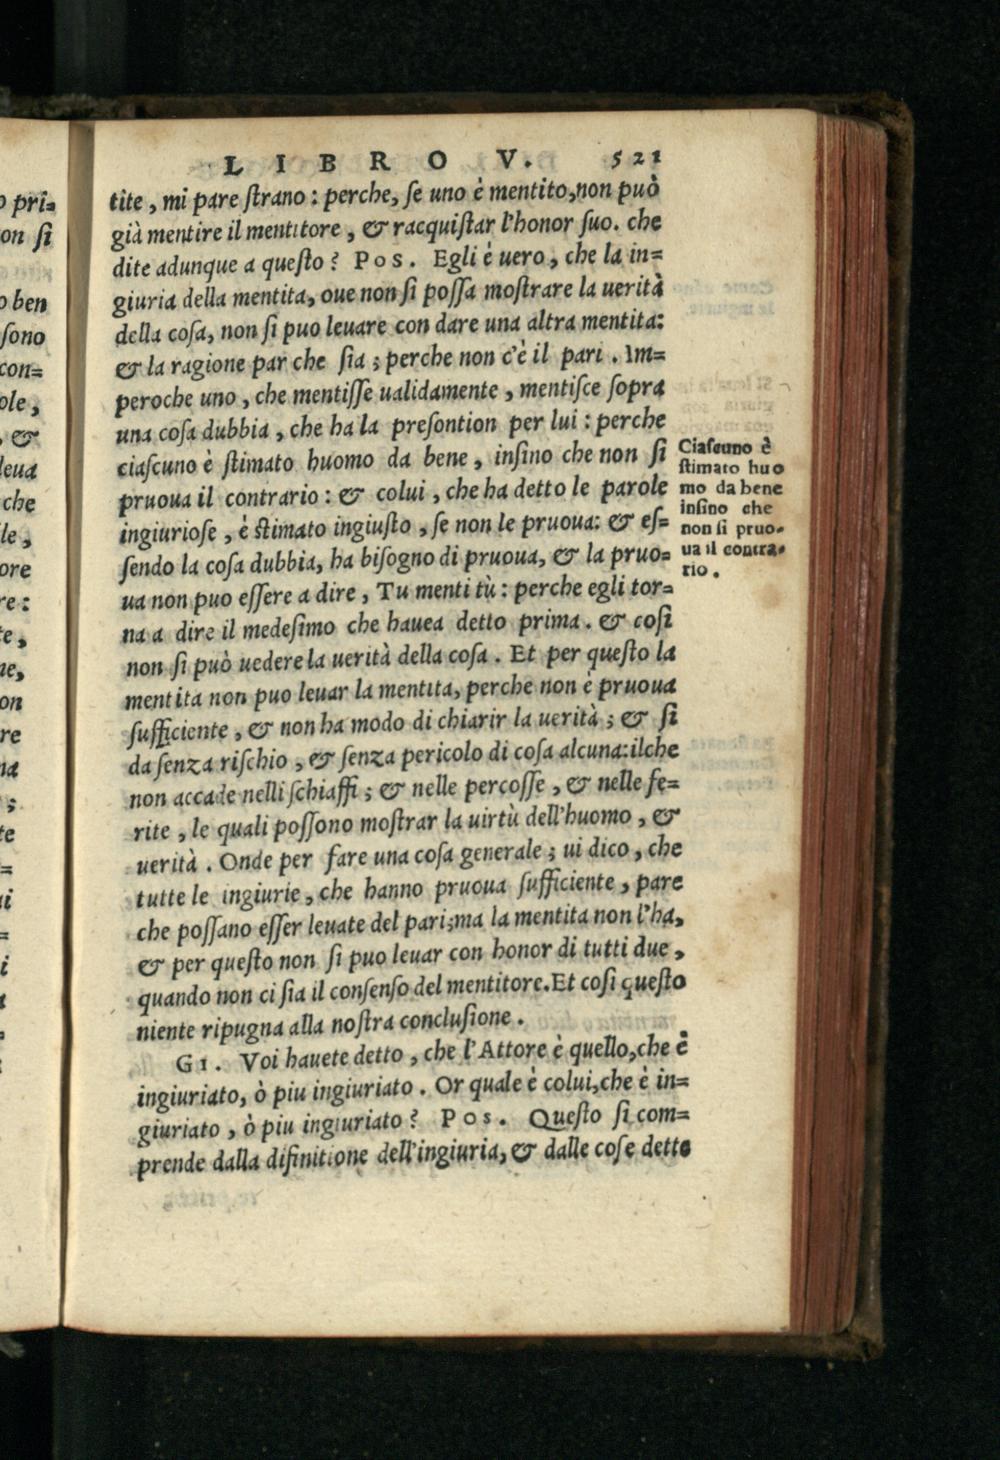 LIBRO V. 521
tite, mi pare ſtrano: perche, ſe uno è mentito, non può
già mentire il mentitore, & racquiſtar l'honor ſuo. che
dite adunque a queſto? Pos. Egli è uero, che la in=
giuria della mentita, oue non ſi poſſa moſtrare la uerità
della coſa, non ſi puo leuare con dare una altra mentita:
& la ragione par che ſia; perche non c'è il pari. Im=
peroche uno, che mentiſſe ualidamente, mentiſce ſopra
una coſa dubbia, che ha la preſontion per lui: perche
ciaſcuno è ſtimato huomo da bene, inſino che non ſi
pruoua il contrario: & colui, che ha detto le parole
ingiurioſe, è ſtimato ingiuſto, ſe non le pruoua: & eſ=
ſendo la coſa dubbia, ha biſogno di pruoua, & la pruo=
ua non puo eſſere a dire, Tu menti tù: perche egli tor=
na a dire il medeſimo che hauea detto prima. & coſi
non ſi può uedere la uerità della coſa. Et per queſto la
mentita non puo leuar la mentita, perche non è pruoua
ſufficiente, & non ha modo di chiarir la uerità; & ſi
da ſenza riſchio, & ſenza pericolo di coſa alcuna: ilche
non accade nelli ſchiaffi; & nelle percoſſe, & nelle fe=
rite, le quali poſſono moſtrar la uirtù dell'huomo, &
uerità. Onde per fare una coſa generale; ui dico, che
tutte le ingiurie, che hanno pruoua ſufficiente, pare
che poſſano eſſer leuate del pari; ma la mentita non l'ha,
& per queſto non ſi puo leuar con honor di tutti due,
quando non ci ſia il conſenſo del mentitore. Et coſi queſto
niente ripugna alla noſtra concluſione.
GI. Voi hauete detto, che l'Attore è quello, che è
ingiuriato, ò piu ingiuriato. Or quale è colui, che è in=
giuriato, ò piu ingiuriato? Pos. Queſto ſi com=
prende dalla difinitione dell'ingiuria, & dalle coſe dette
Ciaſcuno è
ſtimato huo
mo da bene
inſino che
non ſi pruo-
ua il contra-
rio.
o pri=
on ſi
o ben
ſono
con=
ole,
, &
leua
che
le,
ore
re:
te,
ne,
on
re
na
;
te
=
ui
=
i